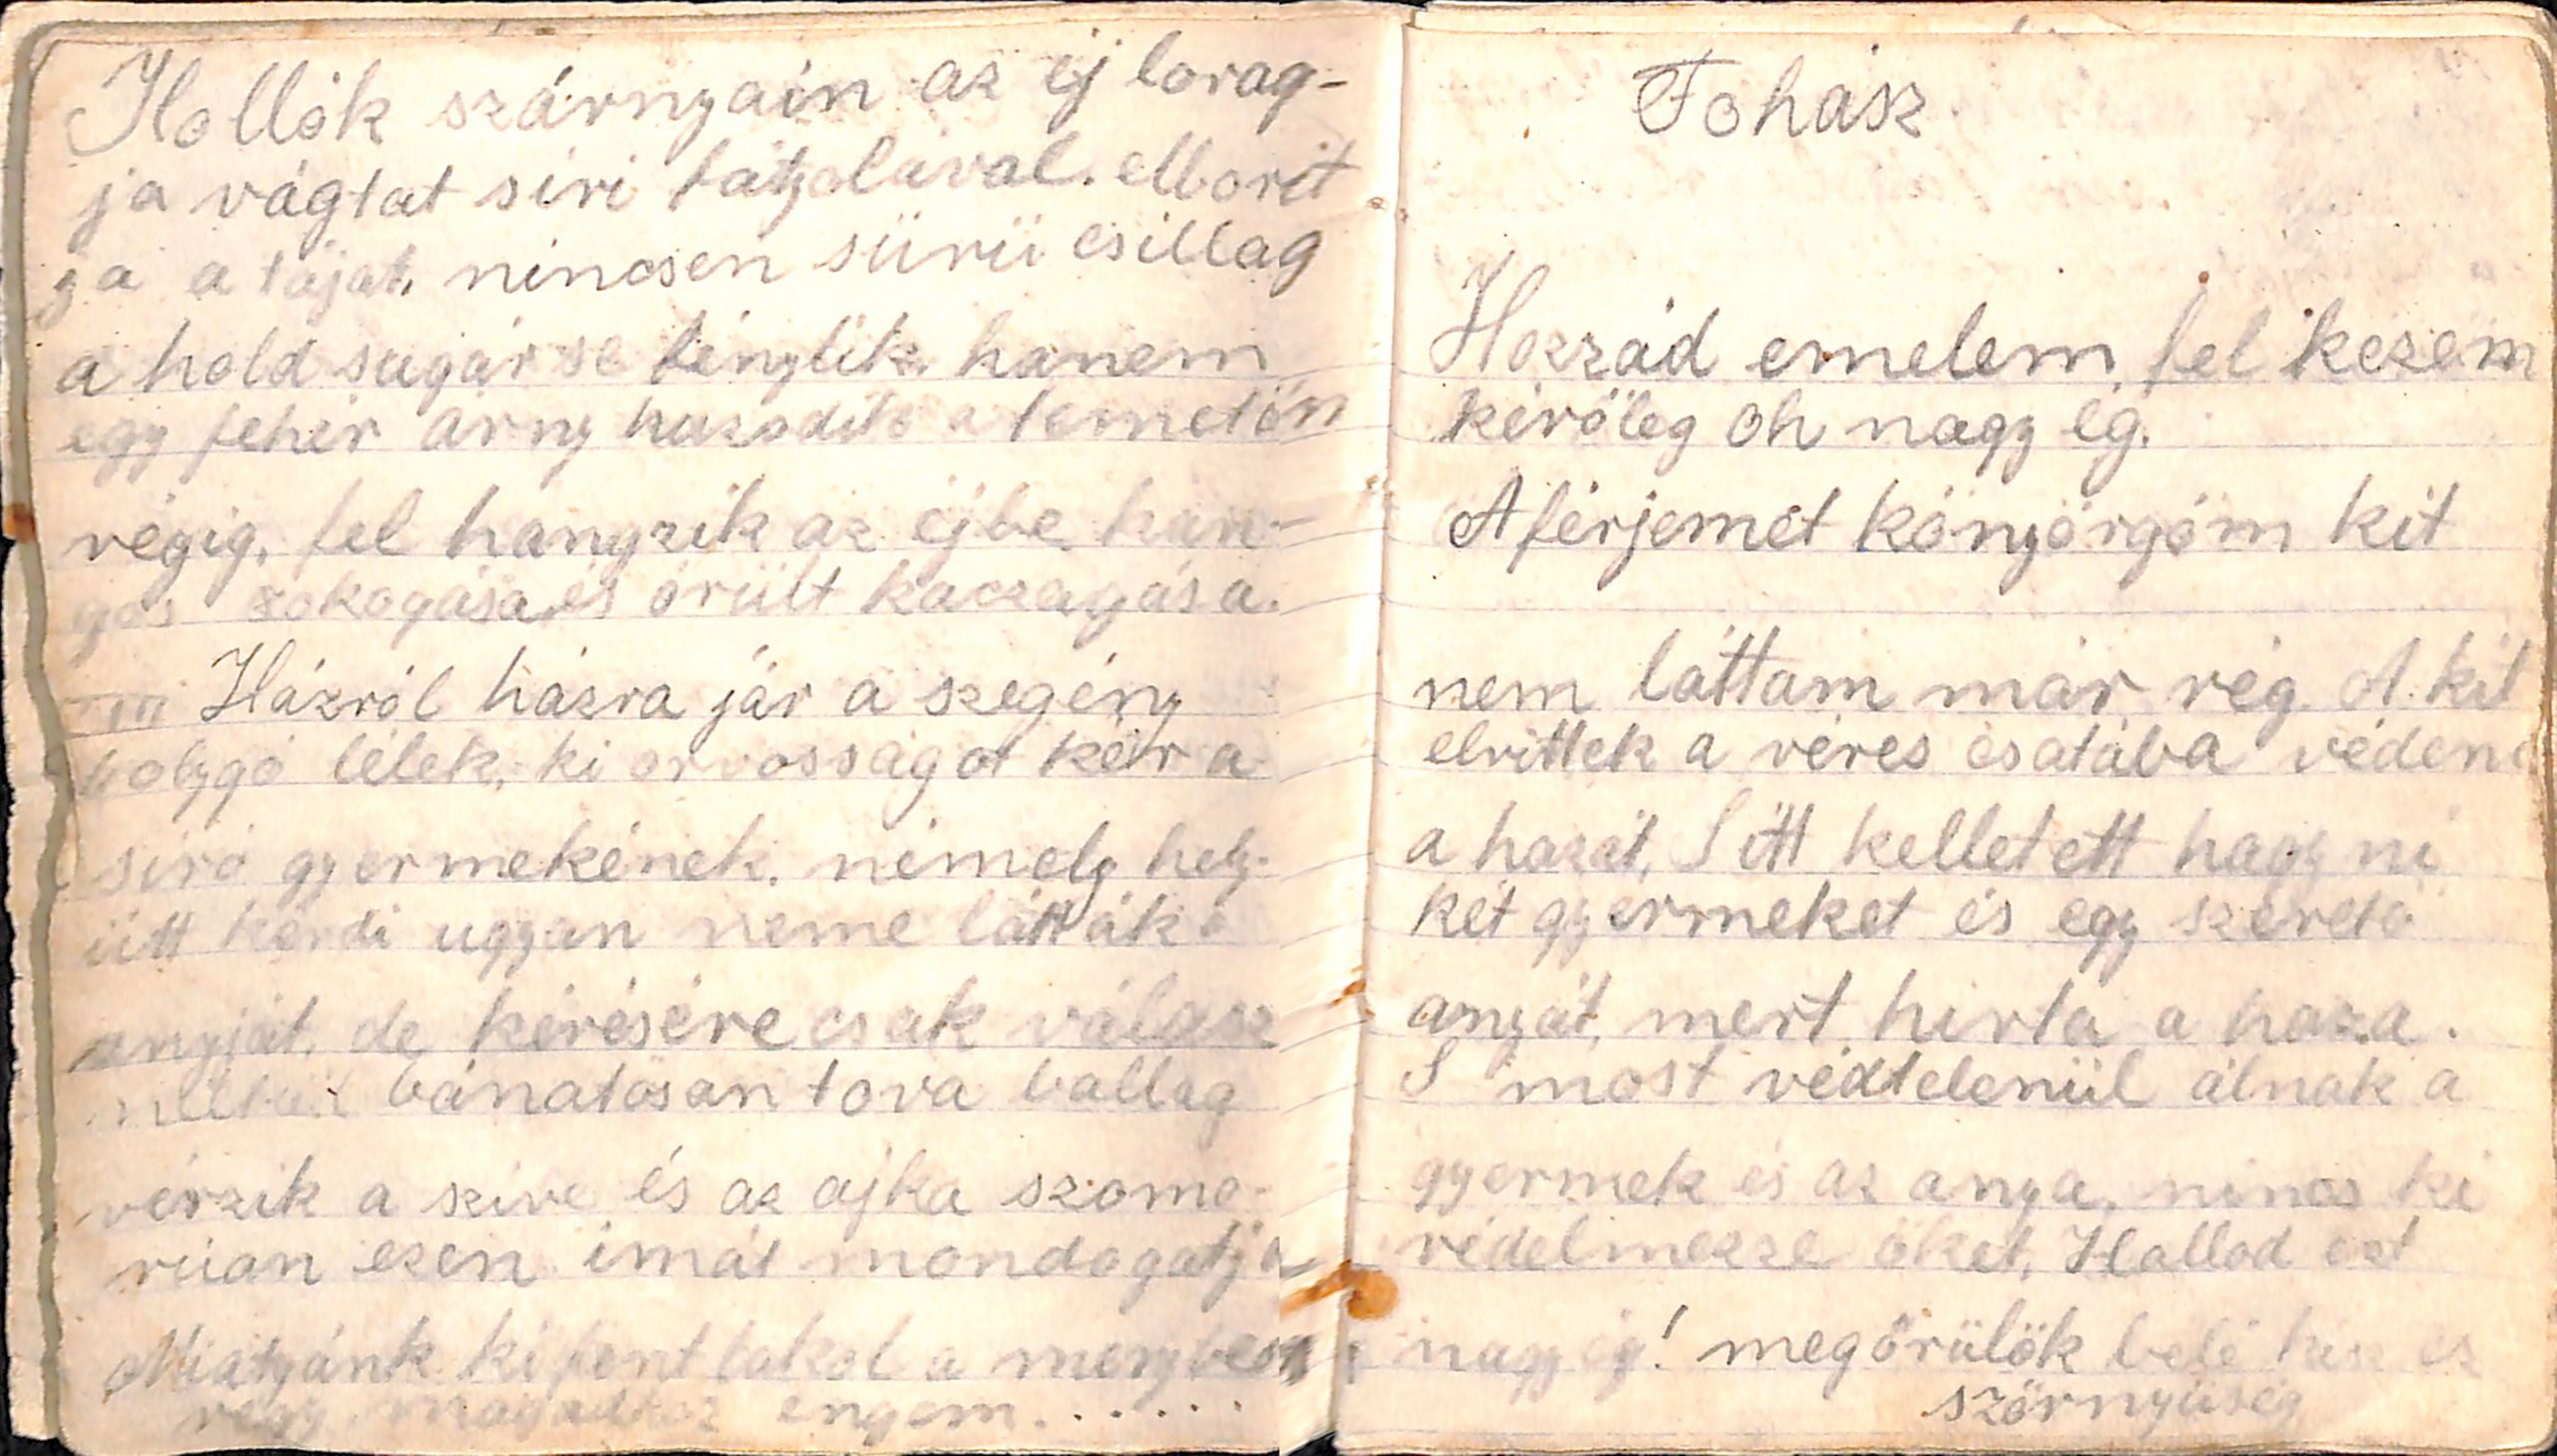 Hollók szárnyain az éj lovag-
ja vágtat siri fátyolával. Morit
ja a tájat, nincsen sürü csillag
a hold sugár se fénylik, hanem
egy fehér árny huzodik a temetőn
végig, fel hangzik az éjbe kán-
gos zokogása és örült kaczagása.
Házról házra jár a szegény
bolygó lélek, ki orvosságot kér a
siró gyermekének. némely hely-
ütt kérdi ugyan neme látták e
anyját, de kérésére csak válasz
nélkül bánatosan tova ballag
vérzik a szive és az ajka szomo-
rúan ezen imát mondogatja
Miatyánk ki fent lakol a menyben
végy magadhoz engem......
Fohász
Hozzád emelem fel kezem
kérőleg oh nagy ég.
A férjemet könyörgöm kit
nem láttam már rég. A kit
elvittek a véres csatába védeni
a hazát, S itt kelletett hagyni
két gyermeket és egy szerető
anyát, mert hivta a haza.
S most védtelenül álnak a
gyermek és az anya, nincs ki
védelmezze őket, Hallod ezt
nagy ég! megőrülök belé hisz ez
szörnyüség